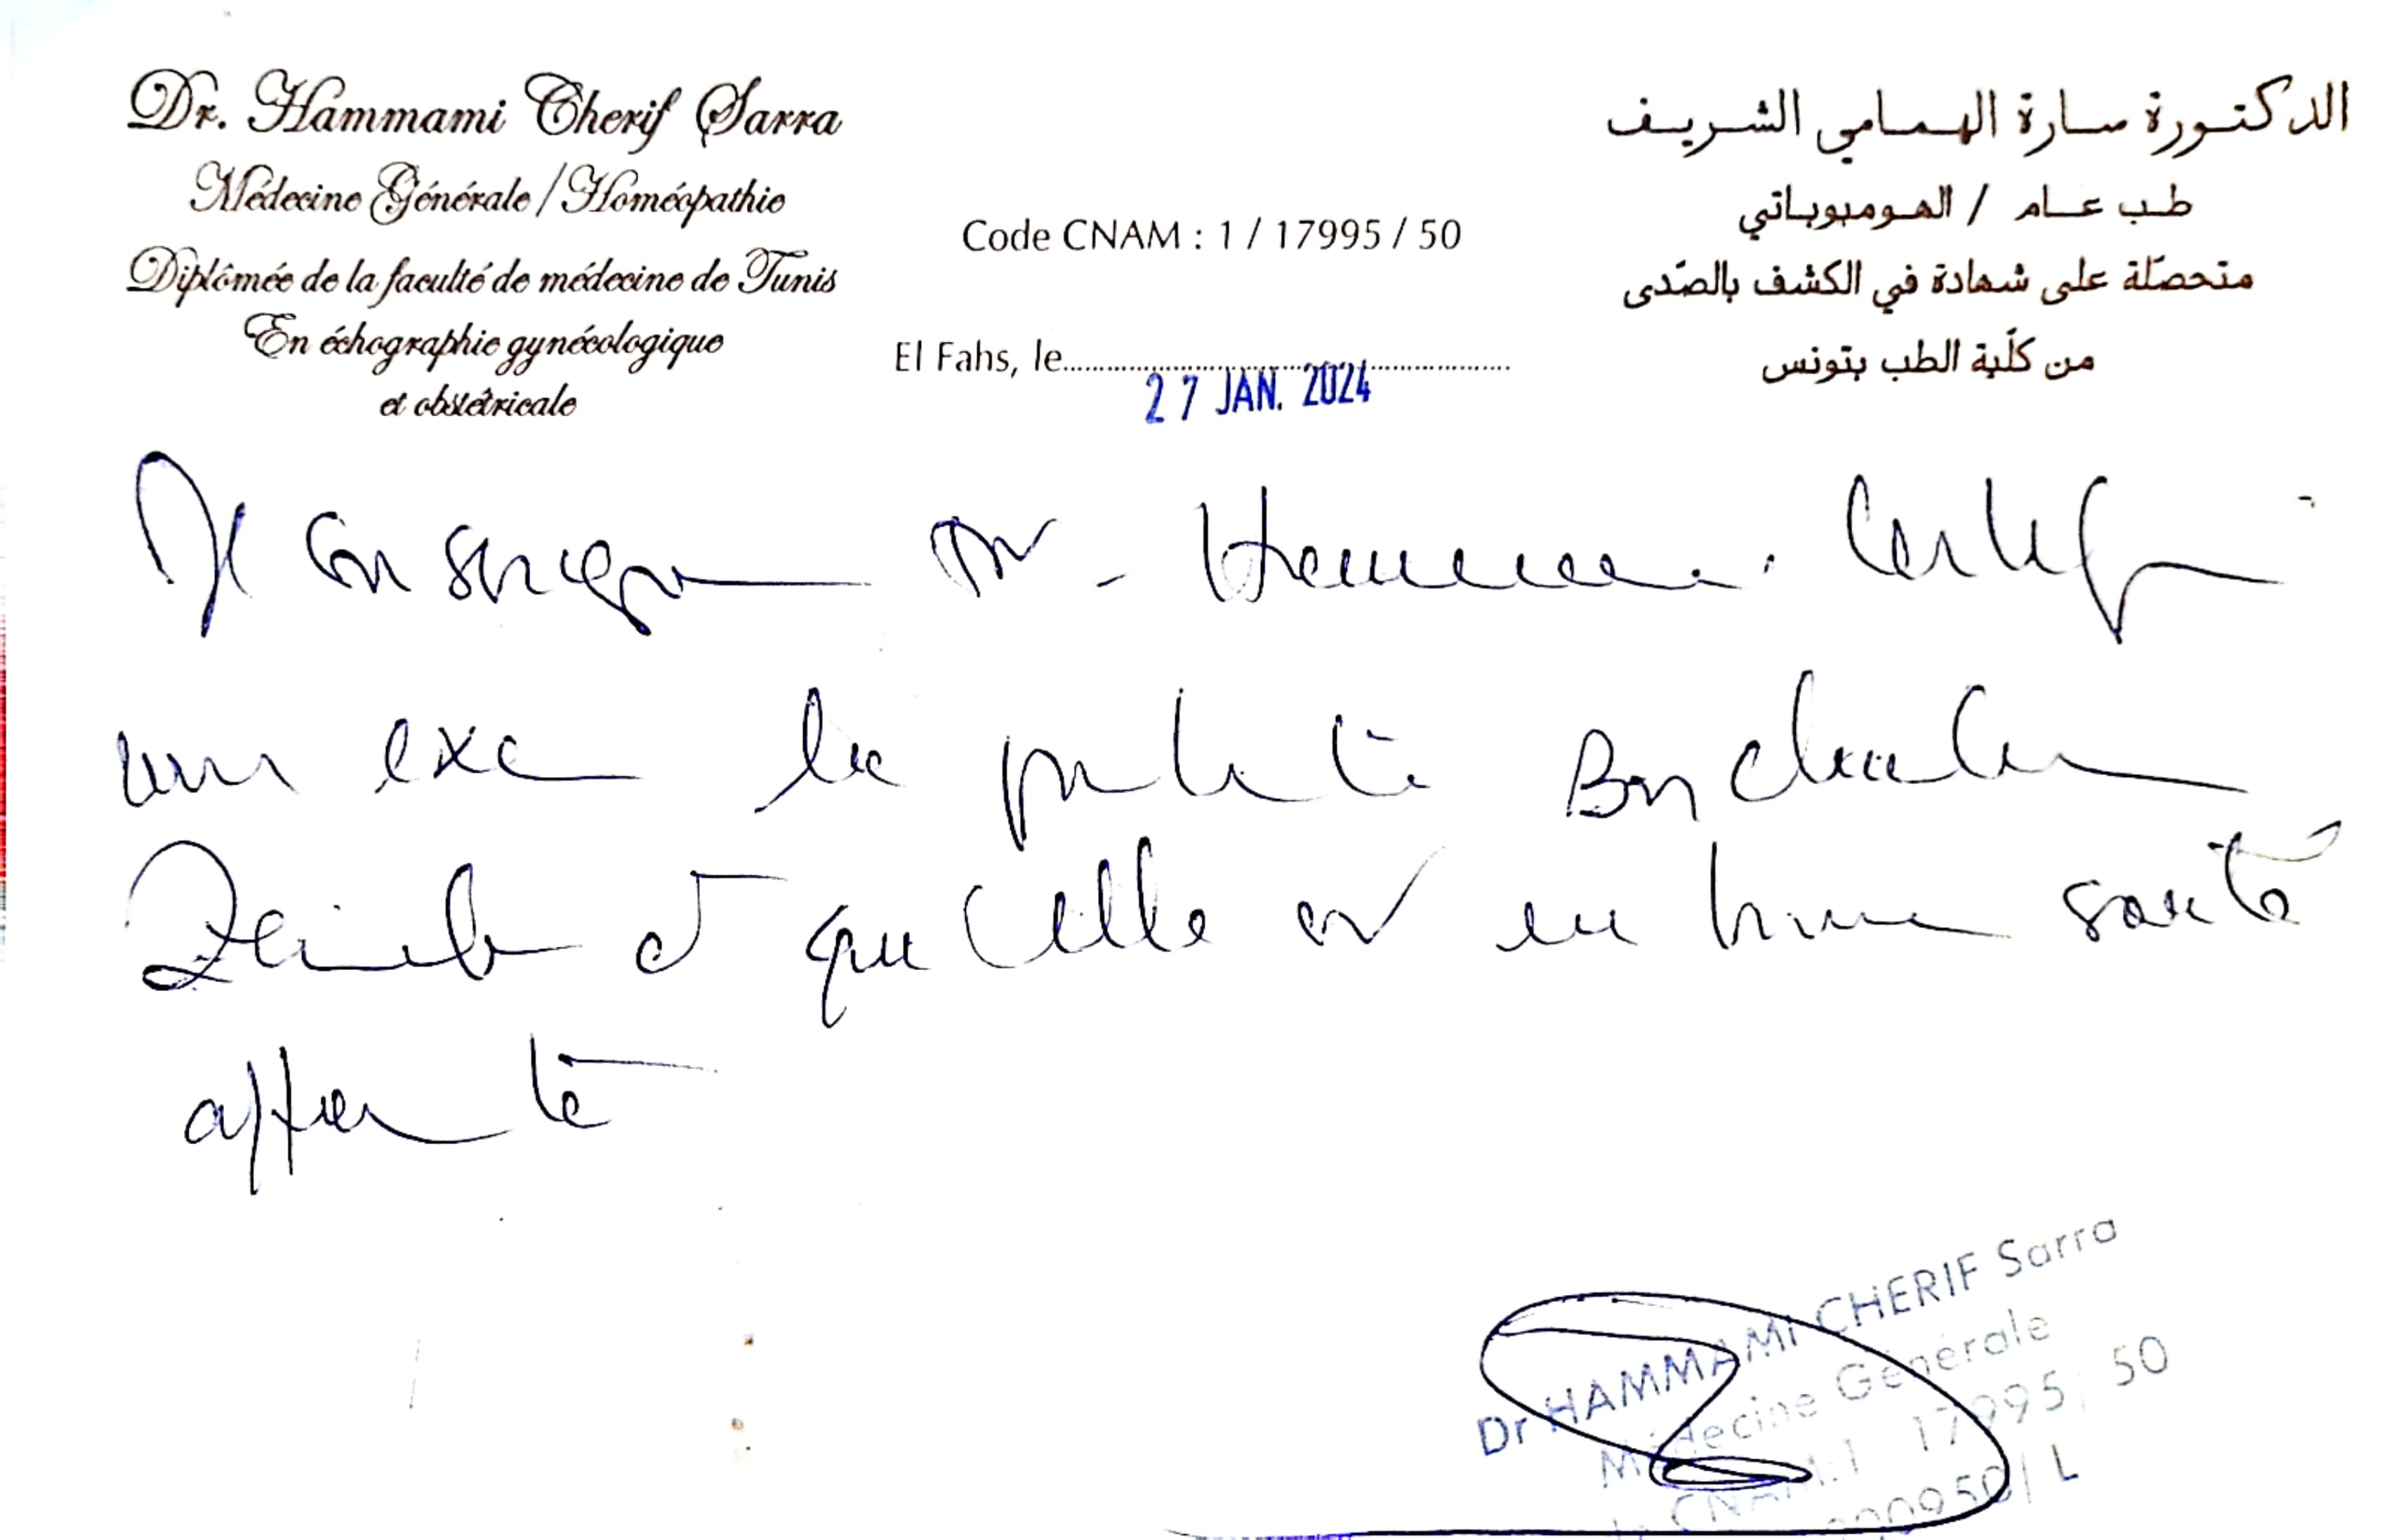 Dr. Hammami Cherif Sarra
Médecine Générale / Homéopathie
Diplômée de la faculté de médecine de Tunis
En échographie gynécologique
et obstétricale
Code CNAM : 1 / 17995 / 50
El Fahs, le
27 JAN. 2024
الدكتورة سارة الهمامي الشريف
طب عام / الهوميوباتي
متحصّلة على شهادة في الكشف بالصّدى
من كلّية الطب بتونس
Je soussigné Dr. Hammami certifie
avoir examiné la patiente
Zeineb et qu'elle est en bonne santé
apparente
Dr HAMMAMI CHERIF Sarra
Médecine Générale
CNAM:1 17995 50